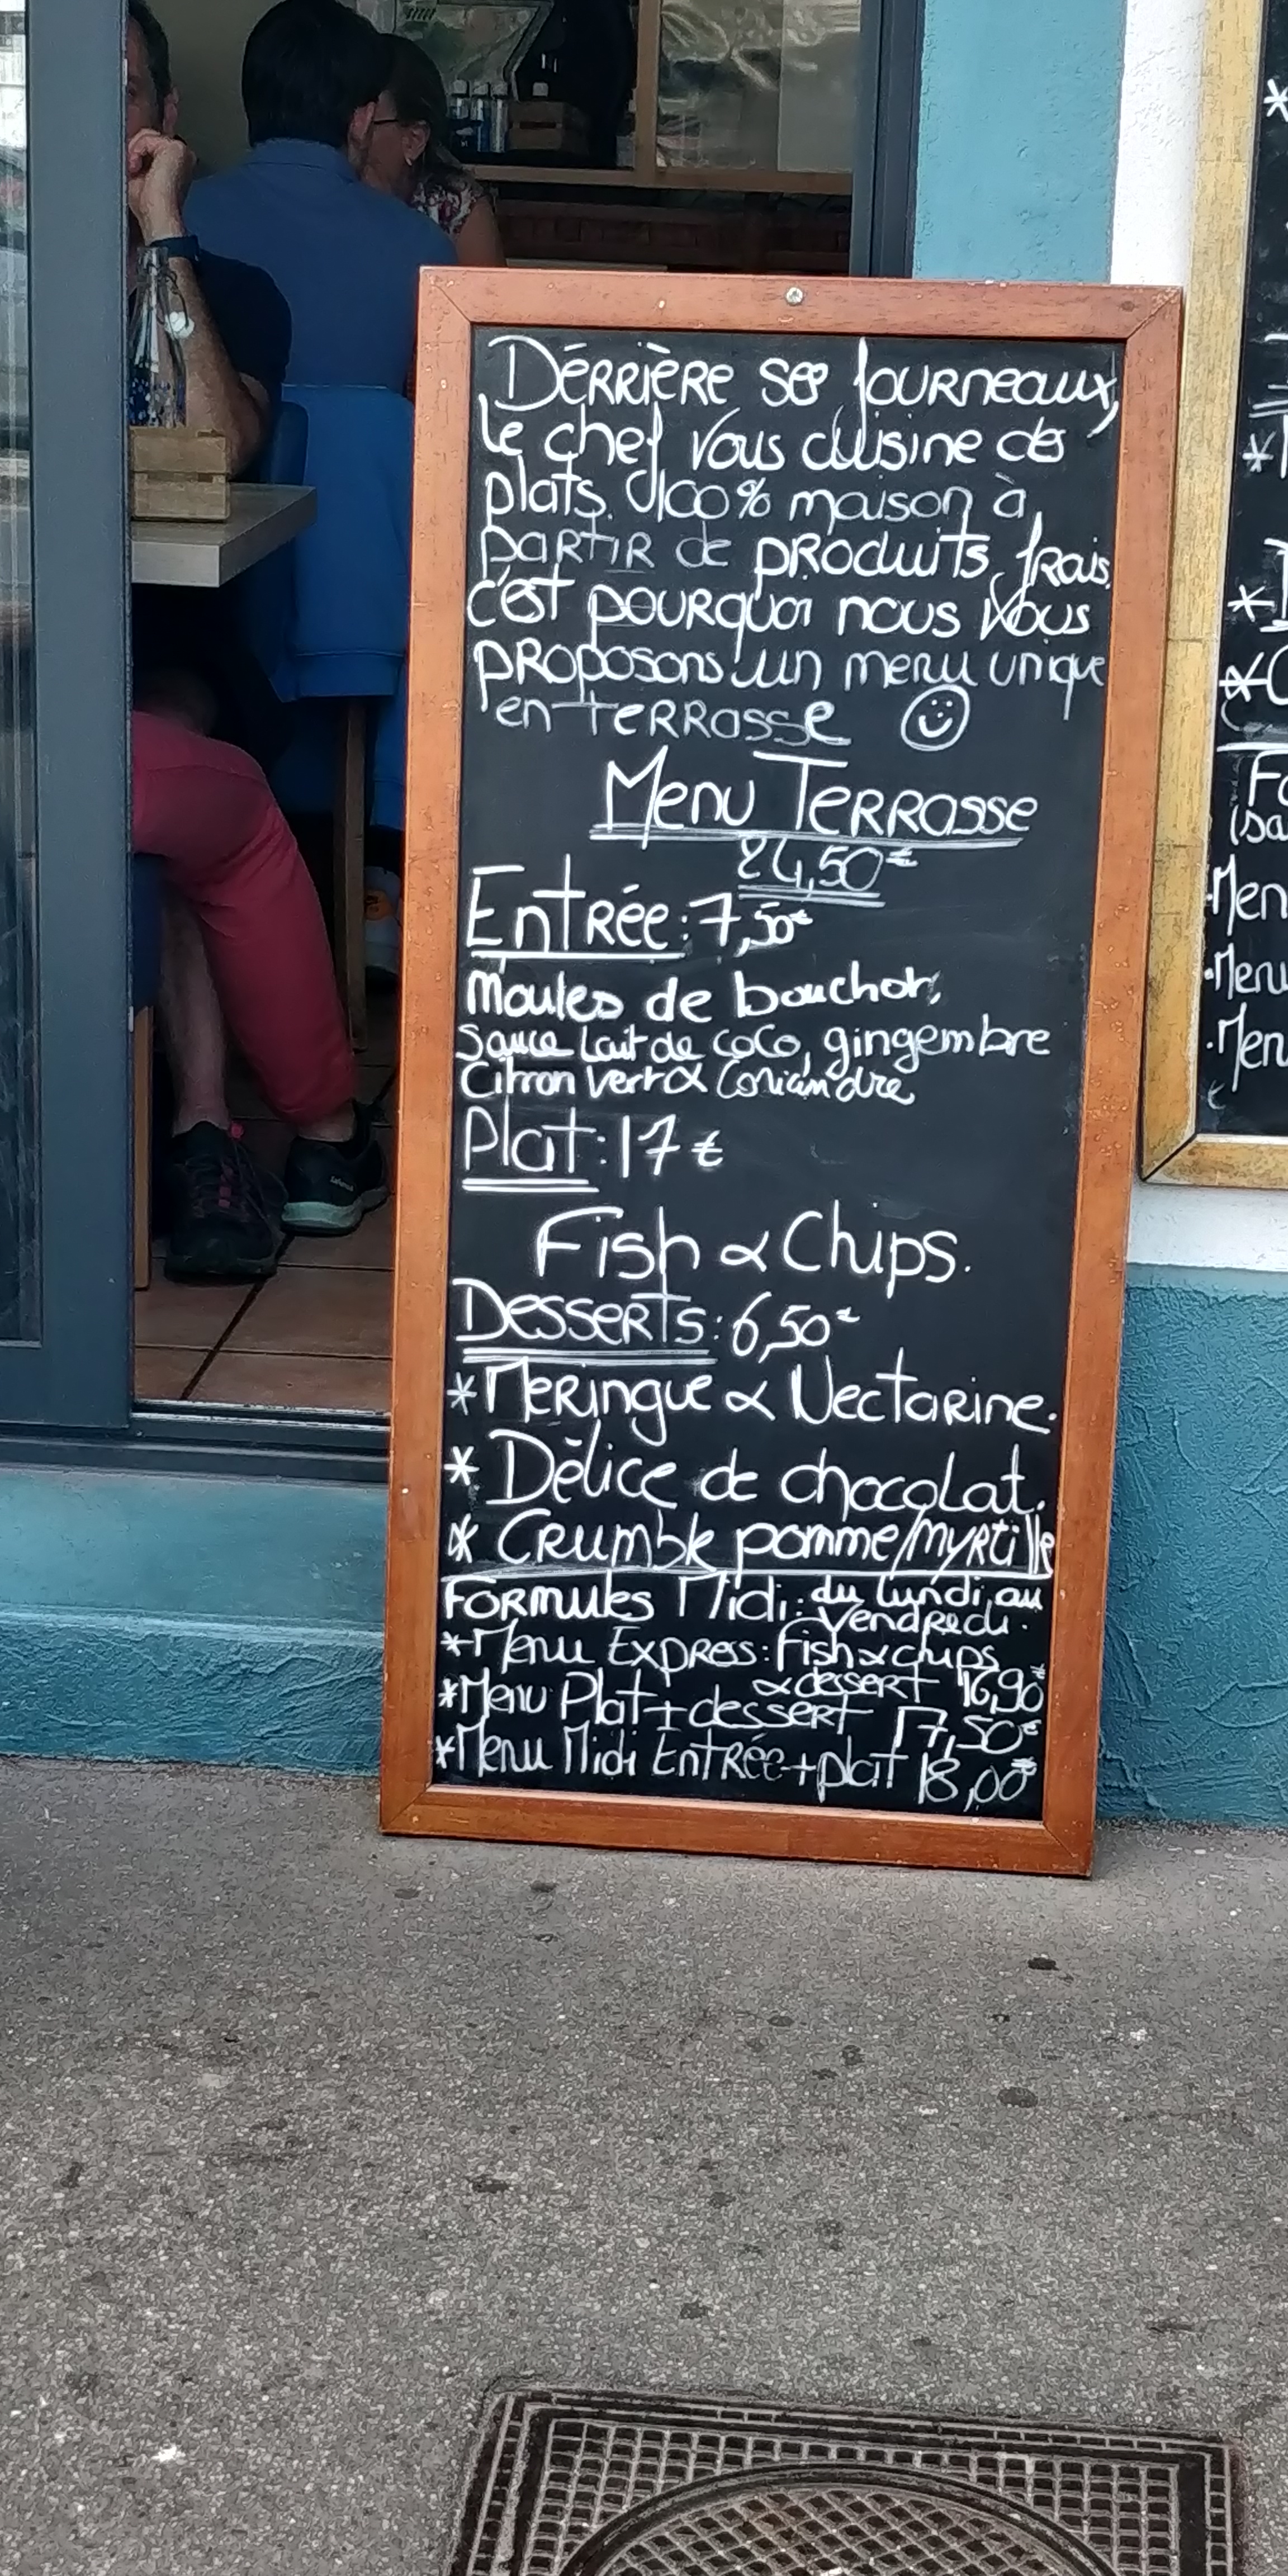 Dérrière ses fourneaux,
le chef vous cuisine des
plats 100% maison à
partir de produits frais.
c'est pourquoi nous vous
proposons un menu unique
en terrasse
Menu Terrasse
24,50€
Entrée: 7,50€
Moules de bouchot,
sauce lait de coco, gingembre
citron vert & Coriandre
Plat: 17€
Fish & Chips.
Desserts: 6,50€
* Meringue & Nectarine.
* Délice de chocolat.
* Crumble pomme/myrtille
Formules Midi: du lundi au
vendredi.
* Menu Express: Fish & chips
& dessert 16,90€
* Menu Plat + dessert 17,50€
* Menu Midi Entrée + plat 18,00€
(sa
Menu